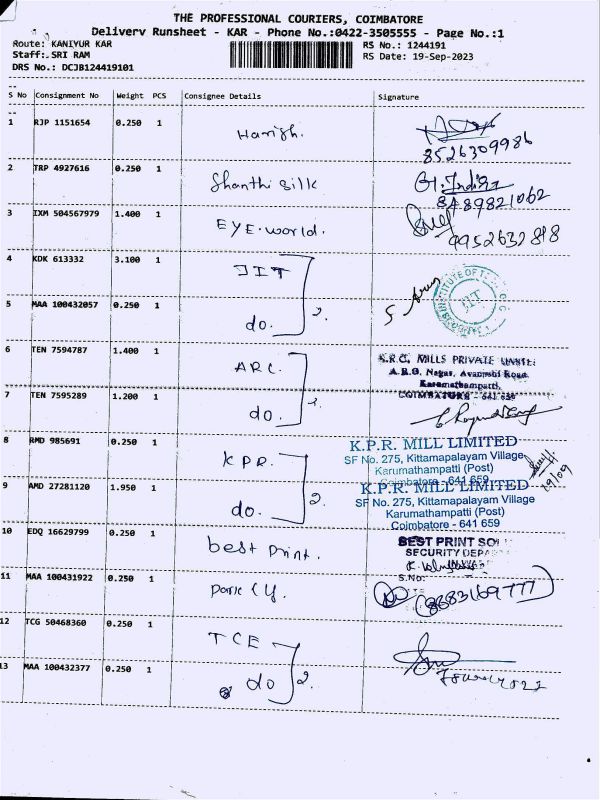 THE PROFESSIONAL COURIERS, COIMBATORE
Delivery Runsheet - KAR - Phone No.:0422-3505555 - Page No.:1
Route: KANIYUR KAR
RS No.: 1244191
Staff: SRI RAM
RS Date: 19-Sep-2023
DRS No.: DCJB124419101
S No Consignment No Weight PCS Consignee Details Signature
1 RJP 1151654 0.250 1 Harish.
8526309986
2 TRP 4927616 0.250 1 Shanthi Silk
8489821062
3 IXM 504567979 1.400 1 EYE.world.
9952632818
4 KDK 613332 3.100 1 JIT
5 MAA 100432057 0.250 1 do. 2.
6 TEN 7594787 1.400 1 ARC.
MILLS PRIVATE
Karamathampatti,
COIMBATORE - 641 659
7 TEN 7595289 1.200 1 do.
8 RMD 985691 0.250 1 KPR.
K.P.R. MILL LIMITED
SF No. 275, Kittamapalayam Village
Karumathampatti (Post)
Coimbatore - 641 659
9 AMD 27281120 1.950 1 do. 2.
K.P.R. MILL LIMITED
SF No. 275, Kittamapalayam Village
Karumathampatti (Post)
Coimbatore - 641 659
19/09
10 EDQ 16629799 0.250 1 best print.
BEST PRINT
SECURITY
S.No:
11 MAA 100431922 0.250 1
8683169777
12 TCG 50468360 0.250 1 TCE
13 MAA 100432377 0.250 1 do 2.